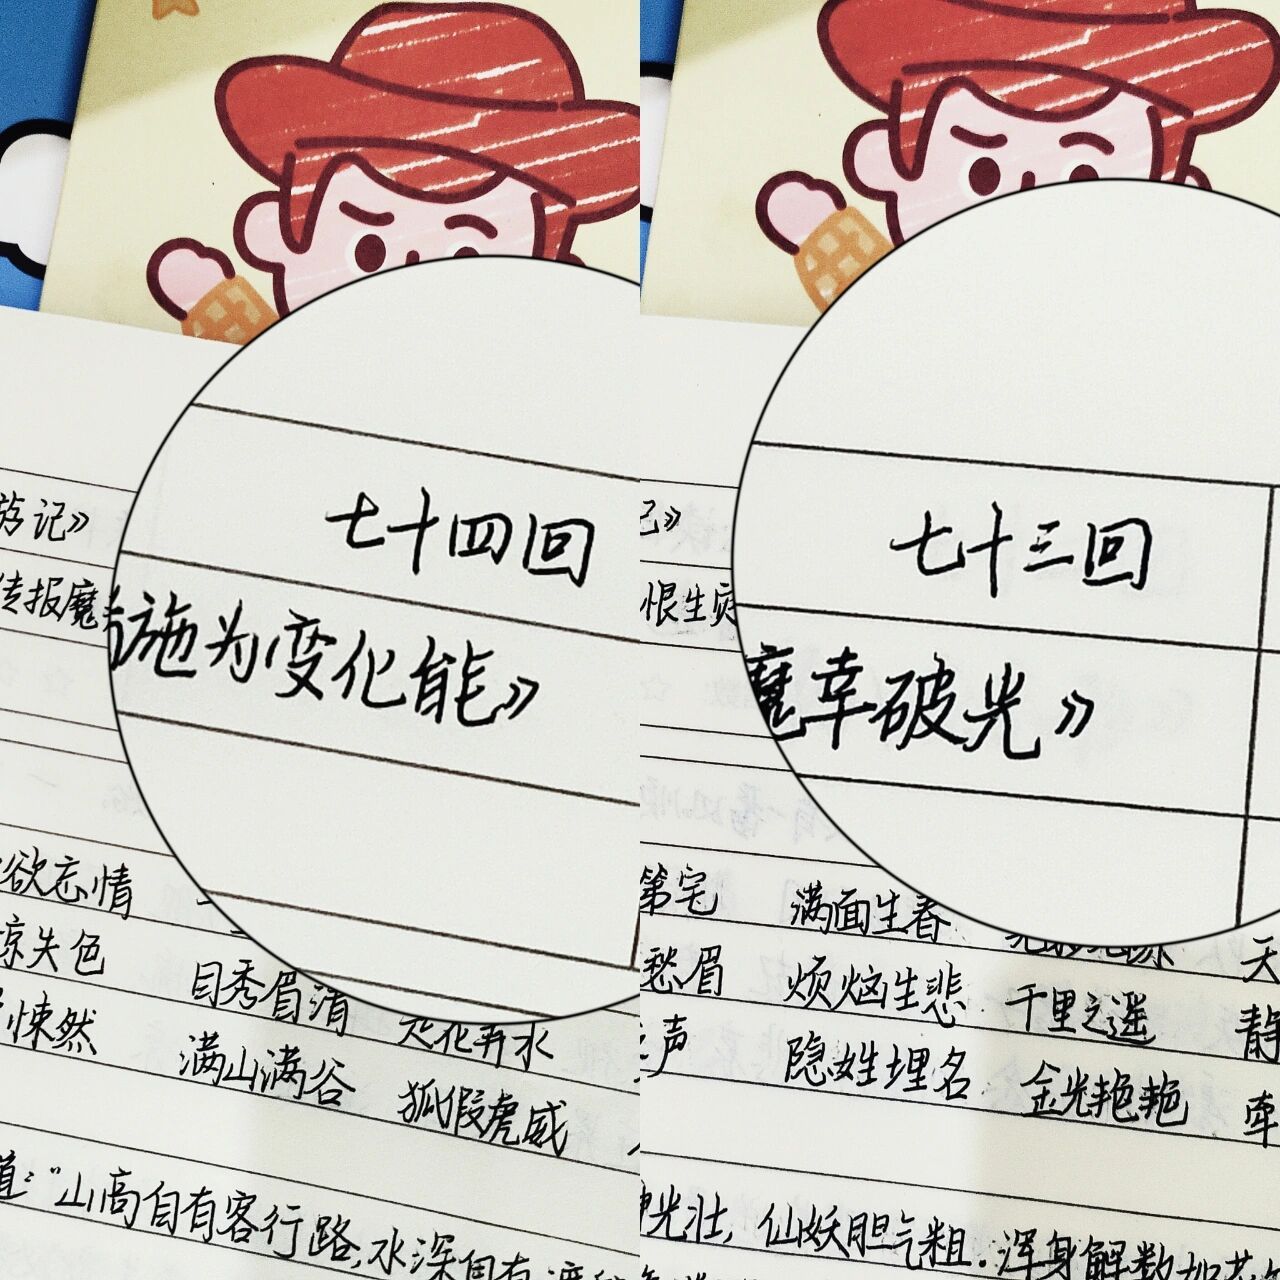 七十四回
游记》
传报魔
施为变化能》
欲忘情
惊失色 目秀眉清
悚然 满山满谷 狐假虎威
道:"山高自有客行路,水深自有渡
七十三回
记》
恨生灾
魔幸破光》
第宅 满面生春
愁眉 烦恼生悲 千里之遥 静
声 隐姓埋名 金光艳艳 牵
光壮,仙妖胆气粗.浑身解数如花